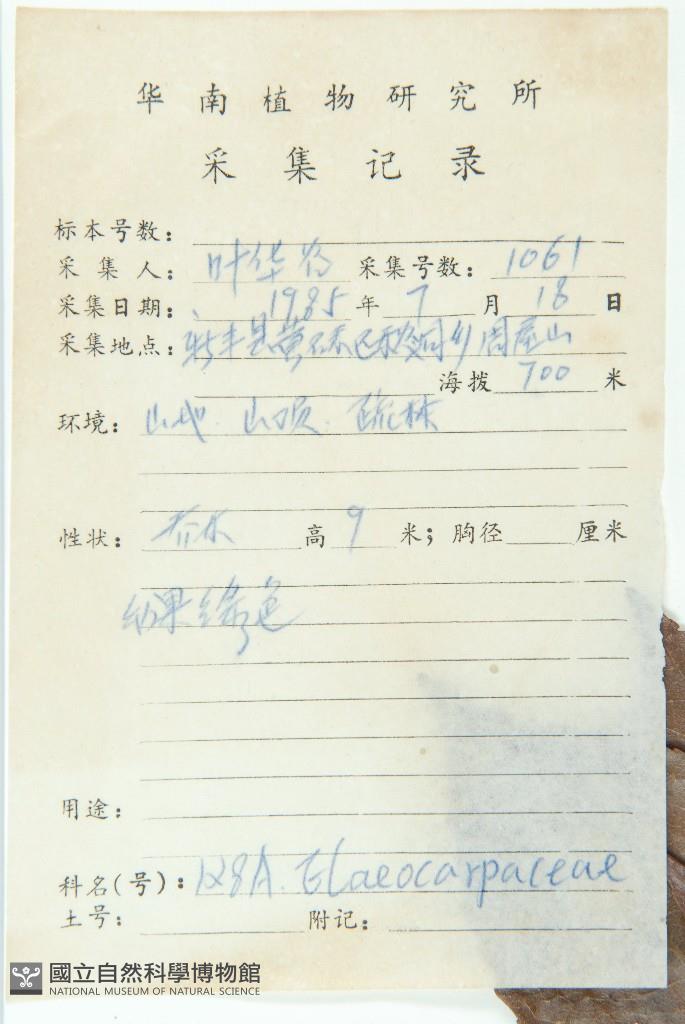 华南植物研究所
采集记录
标本号数:
采集人: 叶华谷 采集号数: 1061
采集日期: 1985年7月18日
采集地点: 新丰县黄磜区 乡 山
海拨 700 米
环境: 山地. 山顶. 疏林
性状: 乔木 高 9 米; 胸径 厘米
幼果绿色
用途:
科名(号): 128A. Elaeocarpaceae
土号: 附记:
國立自然科學博物館
NATIONAL MUSEUM OF NATURAL SCIENCE